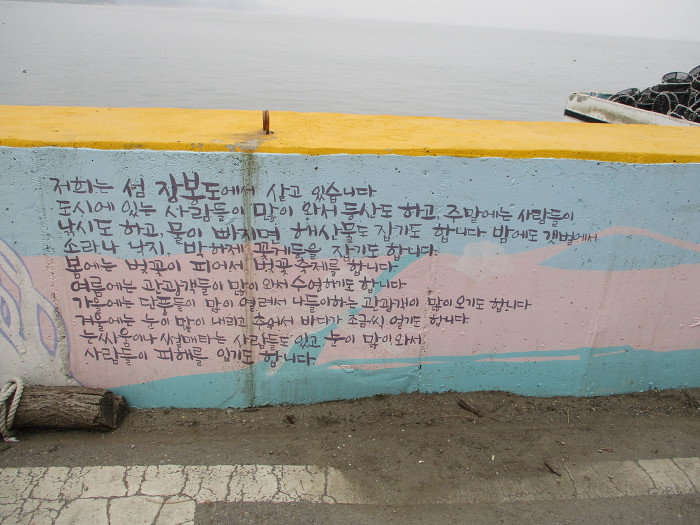 저희는 섬 장봉도에서 살고 있습니다
도시에 있는 사람들이 많이 와서 등산도 하고, 주말에는 사람들이
낚시도 하고, 물이 빠지며 해산물도 잡기도 합니다 밤에도 갯벌에서
소라나 낙지, 박하지, 꽃게등을 잡기도 합니다.
봄에는 벚꽃이 피어서 벚꽃 축제를 합니다
여름에는 관광객들이 많이 와서 수영하기도 합니다
가을에는 단풍들이 많이 열려서 나들이하는 관광객이 많이 오기도 합니다
겨울에는 눈이 많이 내리고 추어서 바다가 조금씩 얼기도 합니다
눈싸움이나 썰매타는 사람들도 있고 눈이 많이 와서
사람들이 피해를 입기도 합니다